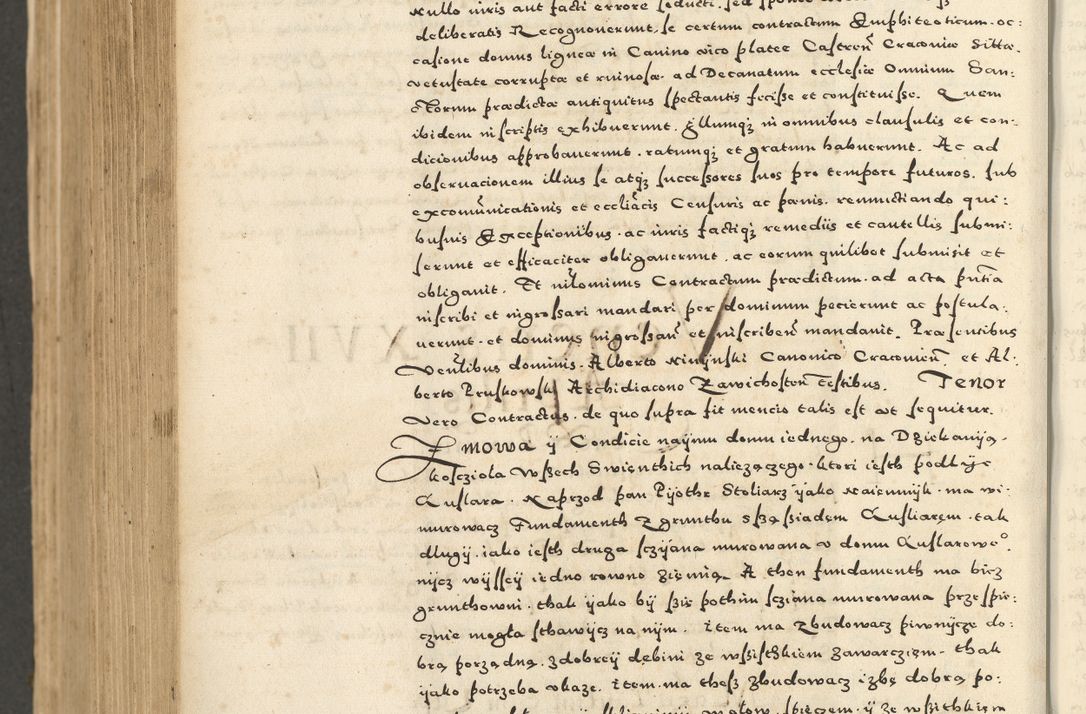 nullo iuris aut facti errore seducti. sed sponte
deliberatis Recognouerunt, se certum contractum Emphiteoticum. oc:
casione domus ligneæ in Canino vico plateæ Castren̄ Cracouiæ sittæ.
vetustate corruptæ et ruinosæ. ad Decanatum ecclesiæ Omnium San:
ctorum prædictæ antiquitus spectantis fecisse et constituisse. Quem
ibidem in scriptis exhibuerunt. Illumqʒ in omnibus clausulis et con:
dicionibus approbauerunt. ratumqʒ et gratum habuerunt. Ac ad
obseruacionem illius se atqʒ successores suos pro tempore futuros. sub
excomūnicationis et eccliācis Censuris ac pœnis. renunctiando qui:
busuis Exceptionibus. ac iuris factiqʒ remediis et cautellis submi:
serunt et efficaciter obligauerunt. ac eorum quilibet submisit et
obligauit. Et nīlominus Contractum prædictum. ad acta pn̄tia
inscribi et ingrossari mandari per dominum pecierunt ac postula:
uerunt. et dominus ingrossari et inscriben̄ mandauit. Præsentibus
Ven̄libus dominis. Alberto Kinijnski Canonico Cracouien̄ et Al:
berto Pruskowski Archidiacono Zawichosten̄ testibus. Tenor
Vero Contractus. de quo supra fit mencio talis est vt sequitur.
Zmowa ij Condicie naijmu domu iednego. na Dziekaniją.
kosczioła Wszech Swięnthich należączego. ktori iesth podlije
Kustara. Naprzod pan Pijothr Stoliarz ijako Naiemnijk. ma wi:
murowacz Fundamenth z grunthu s sząssiadem Kustiarem. tak
dlugij. iako iesth druga scijana murowana w domu Kustarowe°.
nijcz wijssej iedno rowno ziemią. A then fundamenth ma bicz
grunthowni. thak ijako bij szię pothim sciana murowana przespie:
cznie mogła sthawijcz na nijm. item ma zbudowacz piwnijczę do:
brą porządną. z dobreij dębini ze wssisthkiem zawarczizm. thak
ijako potrzeba vkaze. item. ma thesz zbudowacz izbę dobrą po: